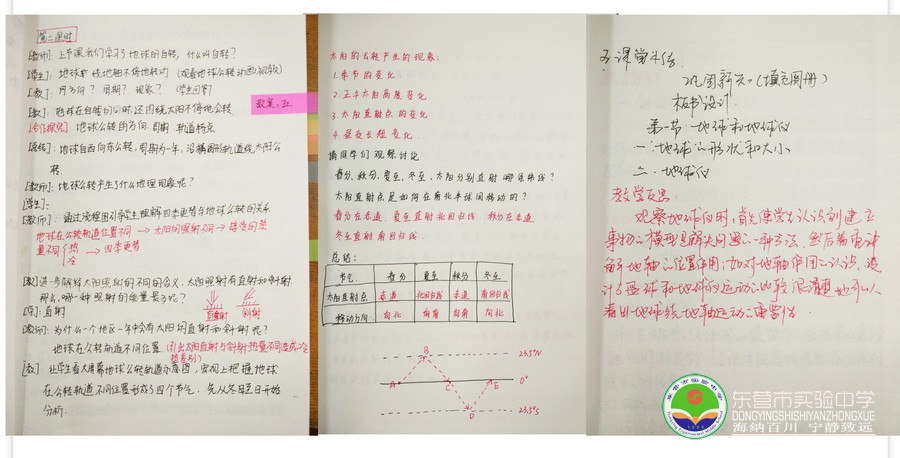 第二课时
[教师]：上节课我们学习了地球的自转，什么叫自转？
[学生]：地球绕地轴不停地转动（观看地球公转动画视频）
[教]：方向？周期？现象？（学生回答）
[教]：地球在自转的同时，还围绕太阳不停地公转
教案：五
[合作探究] 地球公转的方向、周期、轨道特点
[总结]：地球自西向东公转，周期为一年，沿椭圆形轨道绕太阳公
转.
[教师]：地球公转产生了什么地理现象呢？
[学生]：
[教师]：通过流程图引导学生理解四季更替与地球公转的关系
地球在公转轨道位置不同→太阳的照射不同→接受的热
量不同{热 冷→四季更替
[教]进一步解释太阳照射的不同的含义，太阳照射有直射和斜射
那么，哪一种照射的能量最多呢？
直射 斜射
[学]：直射
[教师]：为什么一个地区一年中会有太阳的直射和斜射呢？
地球在公转轨道不同位置
[教]：让学生看大屏幕地球公转轨道示意图，宏观上把握地球
在公转轨道不同位置形成了四个节气，先从冬至日开始
分析.
太阳的公转产生的现象：
1.季节的变化
2.正午太阳高度变化
3.太阳直射点的变化
4.昼夜长短变化
请同学们观察讨论
春分、秋分、夏至、冬至，太阳分别直射哪条纬线？
太阳直射点是如何在南北半球间移动的？
春分在赤道 夏至直射北回归线 秋分在赤道
冬至直射南回归线
总结：
节气 春分 夏至 秋分 冬至
太阳直射点 赤道 北回归线 赤道 南回归线
移动方向 向北 向南 向南 向北
B 23.5°N
A C E 0°
D 23.5°S
五.课堂小结
巩固新知（填充图册）
板书设计
第一节 地球和地球仪
一.地球的形状和大小
二.地球仪
教学反思
观察地球仪时，首先使学生认识到建立
事物的模型是解决问题的一种方法，然后着重讲
解了地轴的位置作用；如对地轴作用的认识，设
计了篮球和地球仪运动的比较，很清楚地可以
看出地球绕地轴运动的重要性.
东营市实验中学
DONGYINGSHISHIYANZHONGXUE
海纳百川 宁静致远